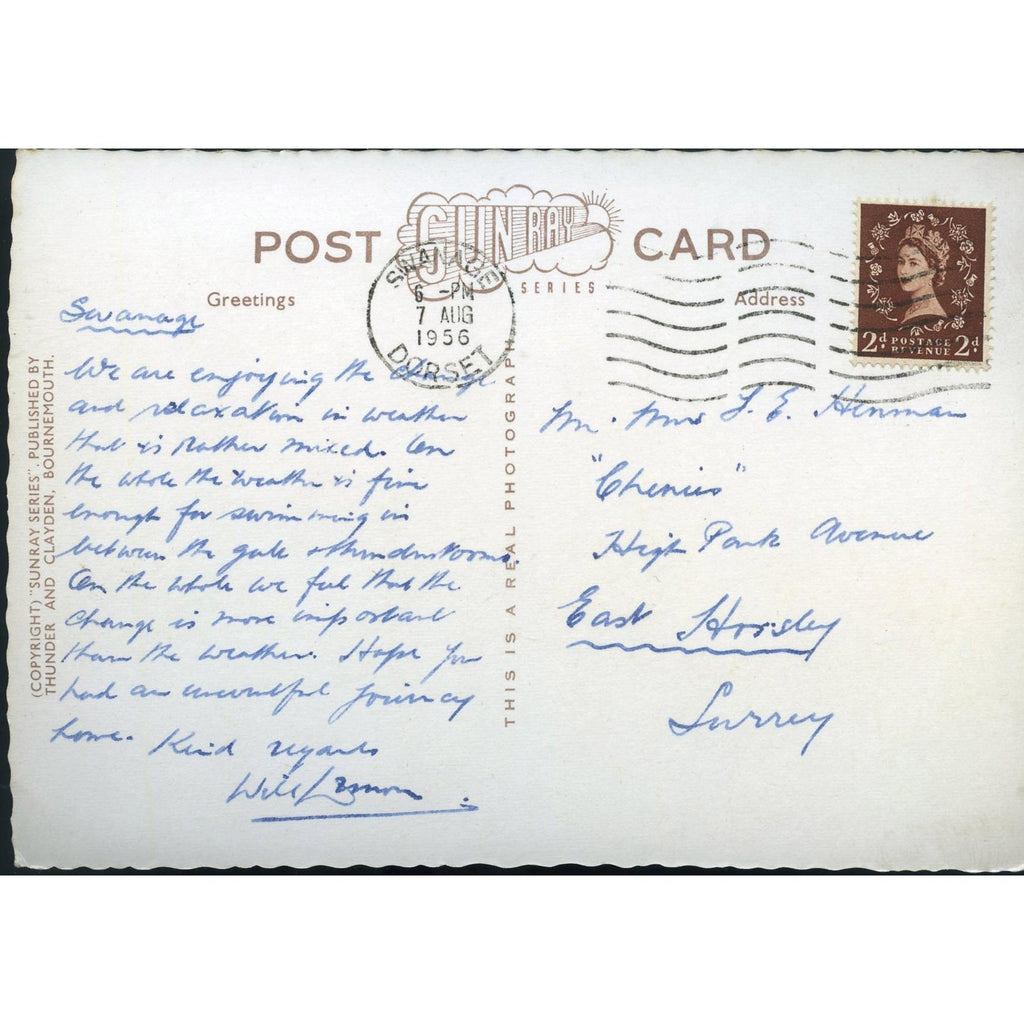 POST SUNRAY CARD
SERIES
Greetings
Address
SWANAGE
6 - PM
7 AUG
1956
DORSET
2d POSTAGE REVENUE 2d
Swanage
We are enjoying the change
and relaxation in weather
that is rather mixed. On
the whole the weather is fine
enough for swimming in
between the gale & thunderstorms.
On the whole we feel that the
change is more important
than the weather. Hope you
had an uneventful journey
home. Kind regards
Will
Mr. Mrs J. E. Henman
"Chenies"
High Park Avenue
East Horsley
Surrey
(COPYRIGHT) "SUNRAY SERIES". PUBLISHED BY
THUNDER AND CLAYDEN, BOURNEMOUTH.
THIS IS A REAL PHOTOGRAPH